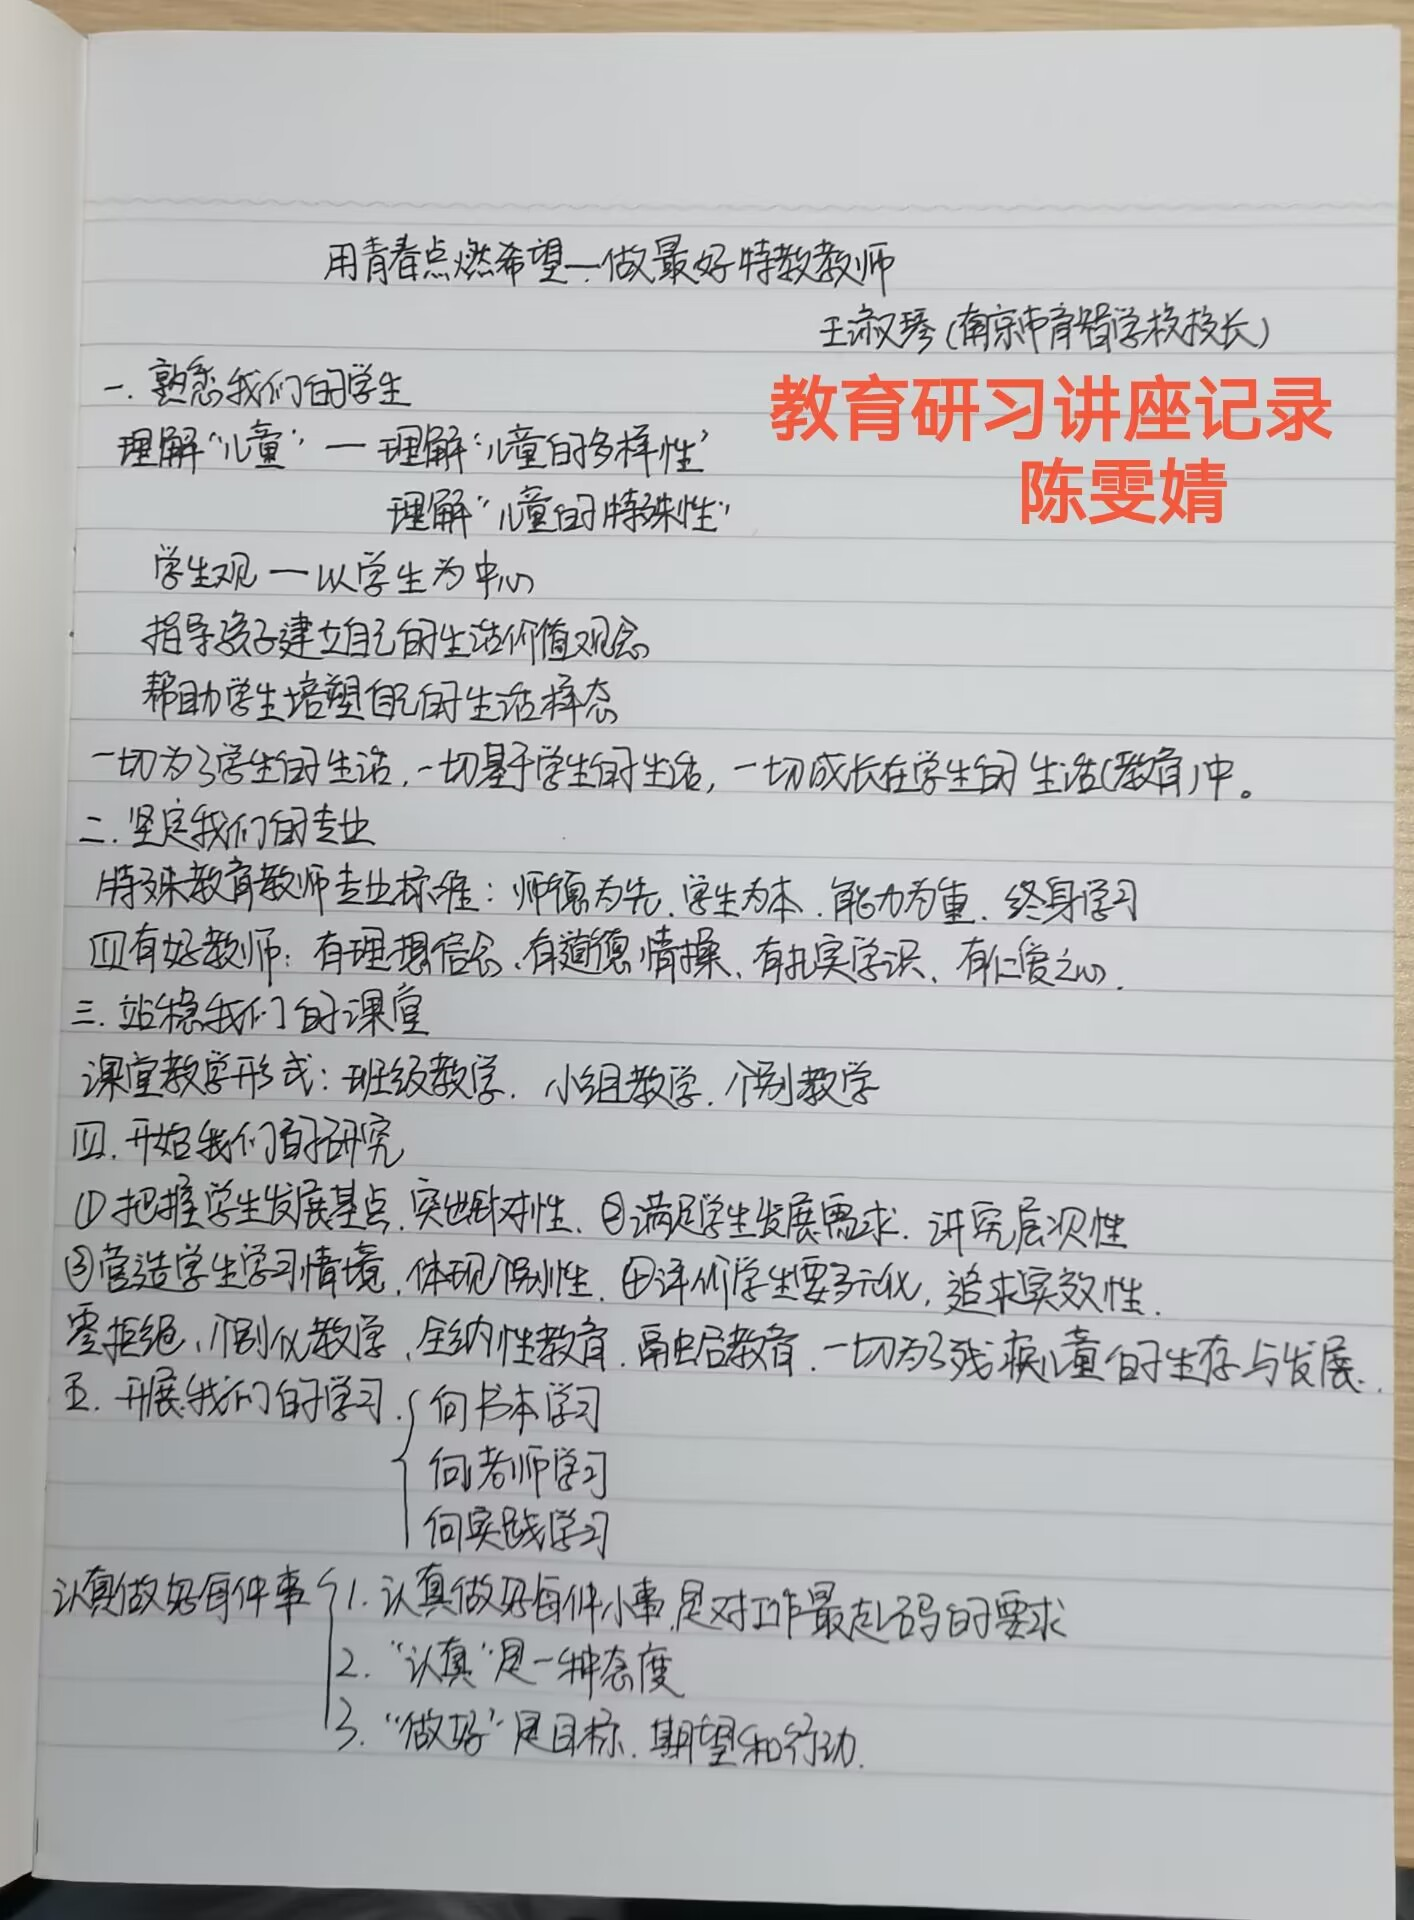 用青春点燃希望—做最好特教教师
王淑琴(南京市育智学校校长)
教育研习讲座记录
陈雯婧
一.熟悉我们的学生
理解“儿童”—理解“儿童的多样性”
理解“儿童的特殊性”
学生观—以学生为中心
指导孩子建立自己的生活价值观念
帮助学生培塑自己的生活样态
一切为了学生的生活,一切基于学生的生活,一切成长在学生的生活(教育)中。
二.坚定我们的专业
特殊教育教师专业标准:师德为先、学生为本、能力为重、终身学习
四有好教师:有理想信念、有道德情操、有扎实学识、有仁爱之心.
三.站稳我们的课堂
课堂教学形式:班级教学、小组教学、个别教学
四.开始我们的研究
①把握学生发展基点,突出针对性、②满足学生发展需求,讲究层次性
③营造学生学习情境,体现个别性、④评价学生要多元化,追求实效性.
零拒绝、个别化教学、全纳性教育、融合教育、一切为了残疾儿童的生存与发展.
五.开展我们的学习. 向书本学习
向老师学习
向实践学习
认真做好每件事 1.认真做好每件小事,是对工作最起码的要求
2.“认真”是一种态度
3.“做好”是目标、期望和行动.